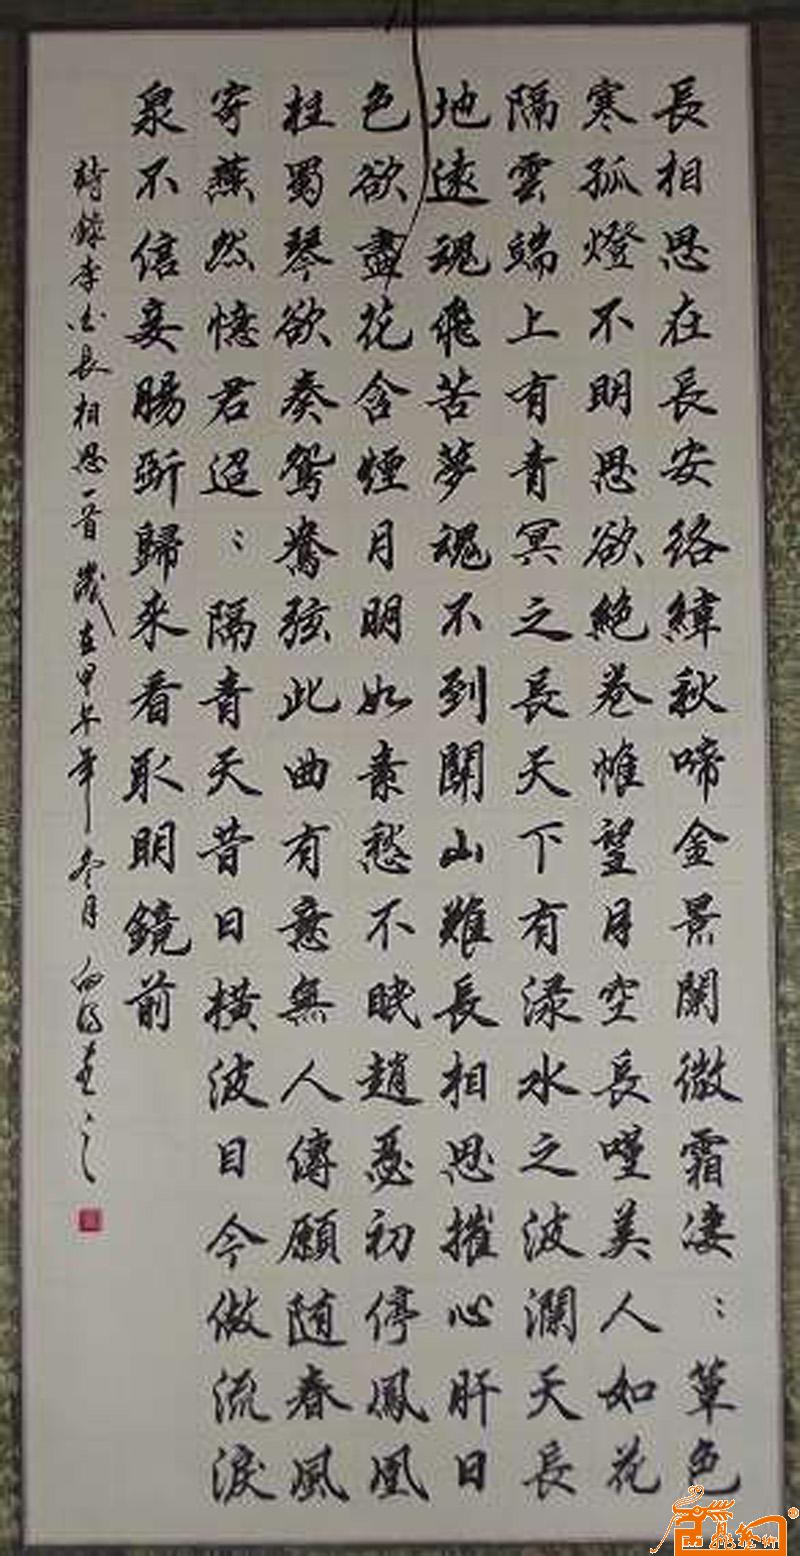 長相思在長安絡緯秋啼金景闌微霜淒：簟色
寒孤燈不明思欲絕卷帷望月空長嘆美人如花
隔雲端上有青冥之長天下有淥水之波瀾天長
地遠魂飛苦夢魂不到關山難長相思摧心肝日
色欲盡花含煙月明如素愁不眠趙瑟初停鳳凰
柱蜀琴欲奏鴛鴦弦此曲有意無人傳願随春風
寄燕然憶君迢：隔青天昔日橫波目今做流淚
泉不信妾腸斷歸來看取明鏡前
詩錄李白長相思一首歲在甲午年冬月